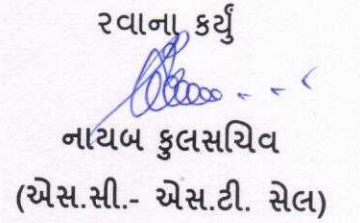 રવાના કર્યું
નાયબ કુલસચિવ
(એસ.સી.- એસ.ટી. સેલ)